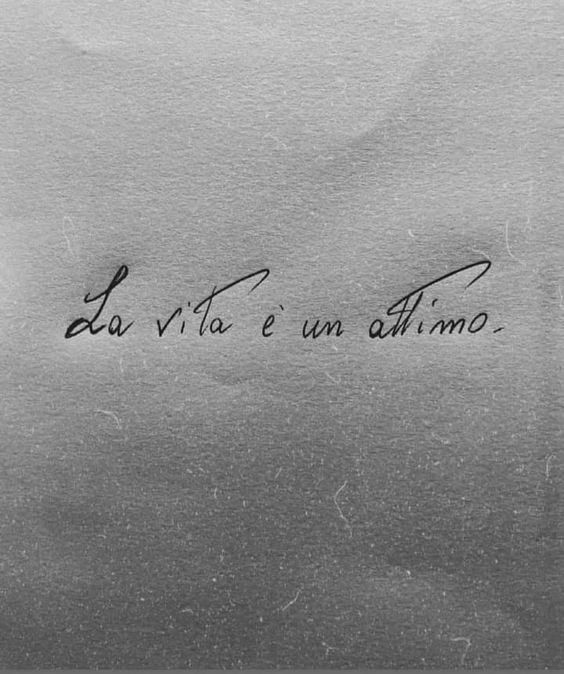 La vita è un attimo.